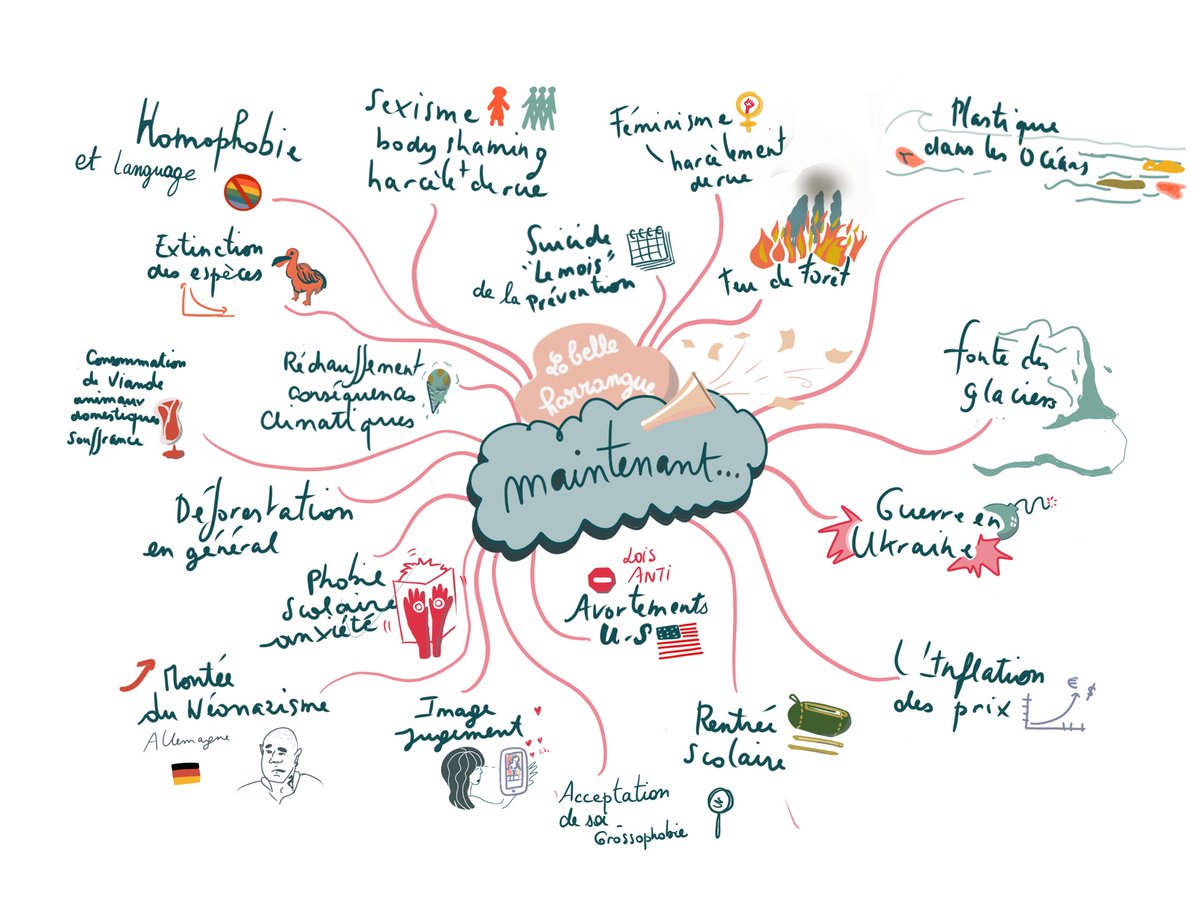 Homophobie
et language
Sexisme
body shaming
harcèlet de rue
Féminisme
harcèlement
de rue
Plastique
dans les Océans
Extinction
des espèces
Suicide
"Le mois"
de la Prévention
Feu de Forêt
Consommation
de Viande
animaux
domestiques
Souffrance
Réchauffement
Conséquences
Climatiques
La belle
harrangue
maintenant...
fonte des
glaciers
Déforestation
en général
Guerre en
Ukraine
Phobie
Scolaire
anxiété
LOIS
ANTI
Avortements
U-S
Montée
du Néonazisme
Allemagne
Image
jugement
Acceptation
de soi -
Grossophobie
Rentrée
Scolaire
L'Inflation
des prix
€ $